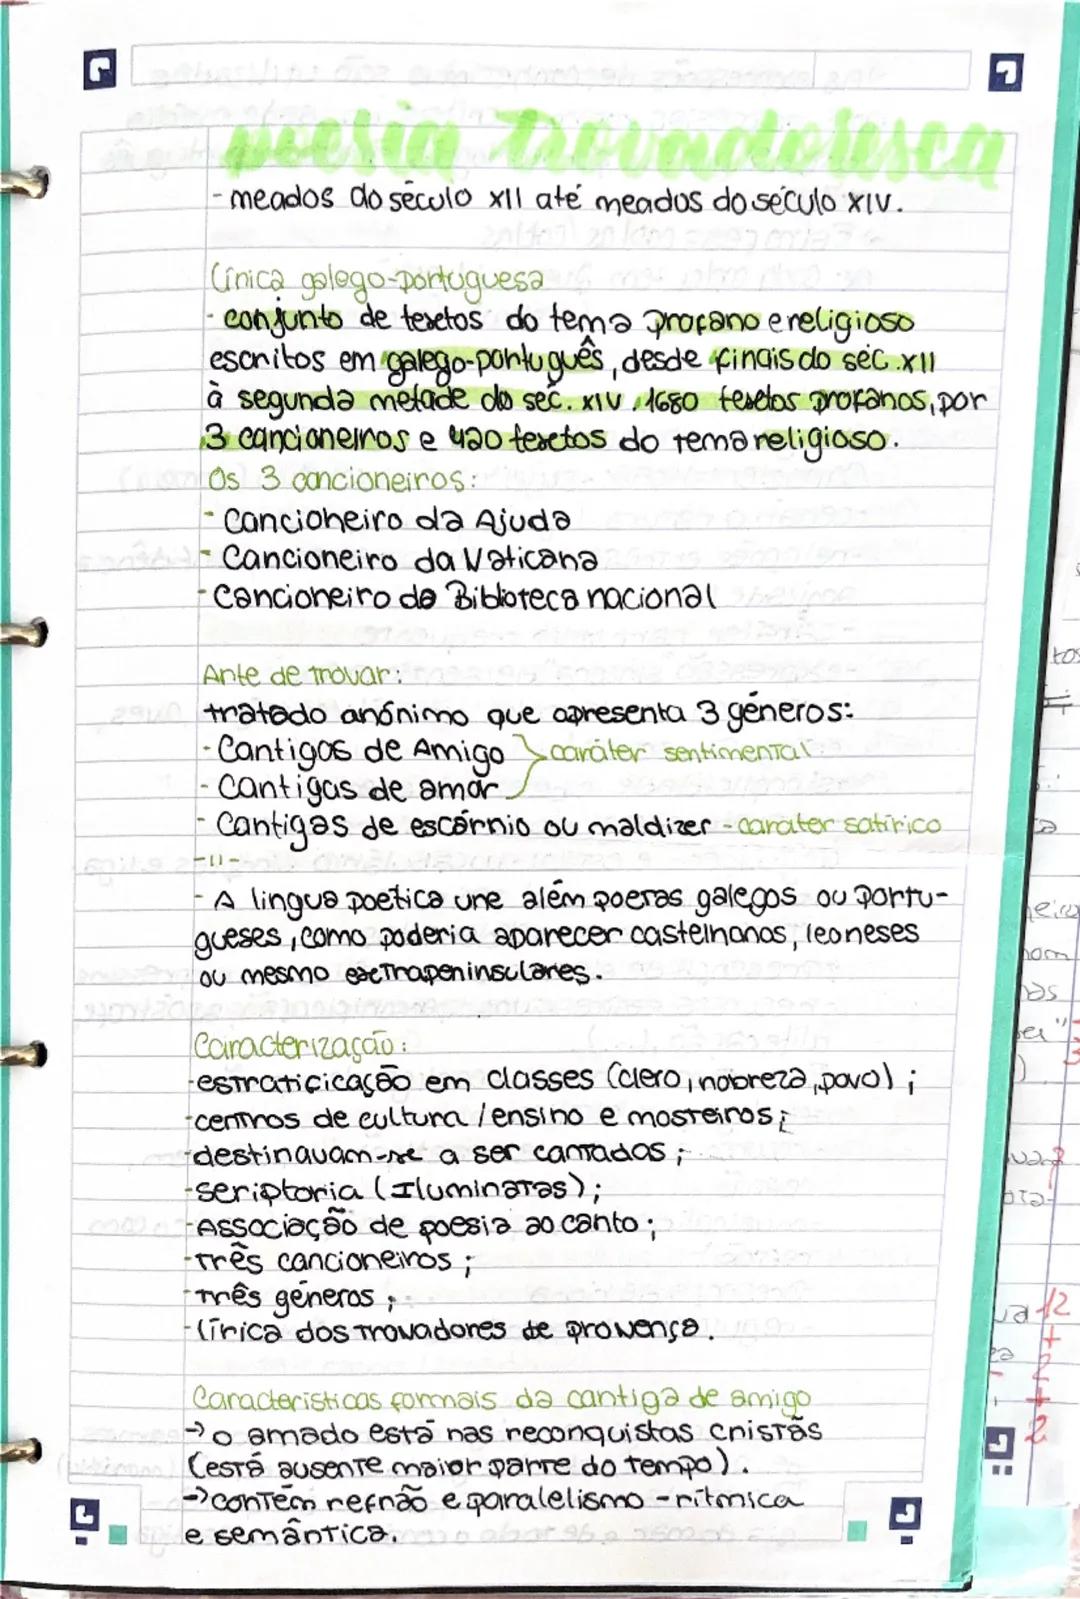 poesia trovadoresca
- meados do século XII até meados do século XIV.
Lírica galego-portuguesa
- conjunto de textos do tema profano e religioso
escritos em galego-português, desde finais do séc. XII
à segunda metade do séc. XIV. 1680 textos profanos, por
3 cancioneiros e 420 textos do tema religioso.
Os 3 cancioneiros:
- Cancioneiro da Ajuda
- Cancioneiro da Vaticana
- Cancioneiro da Biblioteca nacional
Arte de trovar:
tratado anónimo que apresenta 3 géneros:
- Cantigas de Amigo } caráter sentimental
- Cantigas de amor
- Cantigas de escárnio ou maldizer - carater satírico
-11-
- A lingua poetica une além poetas galegos ou portu-
gueses, como poderia aparecer castelhanos, leoneses
ou mesmo extrapeninsulares.
Caracterização:
- estratificação em classes (clero, nobreza, povo);
- centros de cultura / ensino e mosteiros;
- destinavam-se a ser cantadas;
- scriptoria (Iluminatas);
- Associação de poesia ao canto;
- três cancioneiros;
- três géneros;
- lírica dos trovadores de provença.
Caracteristicas formais da cantiga de amigo
→ o amado está nas reconquistas cristãs
(está ausente maior parte do tempo).
→ contém refrão e paralelismo - rítmica
e semântica.
12
+
2
+
2